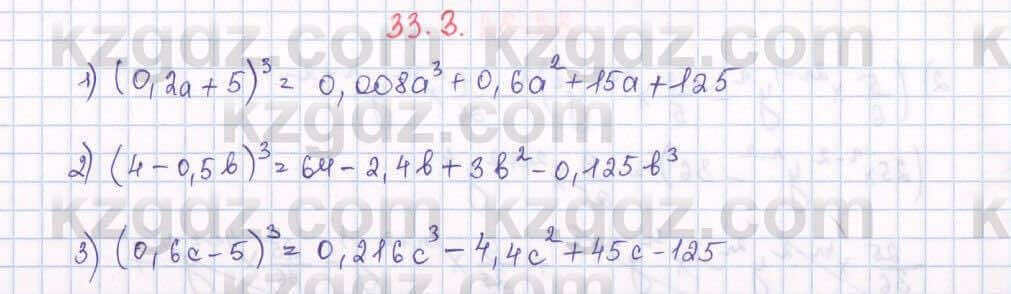 33.3.
1) (0,2a+5)³ = 0,008a³+0,6a²+15a+125
2) (4-0,5b)³ = 64-2,4b+3b²-0,125b³
3) (0,6c-5)³ = 0,216c³-4,4c²+45c-125
kzgdz.com kzgdz.com
kzgdz.com
kzgdz.com
kzgdz.com kzgdz.com
kzgdz.com